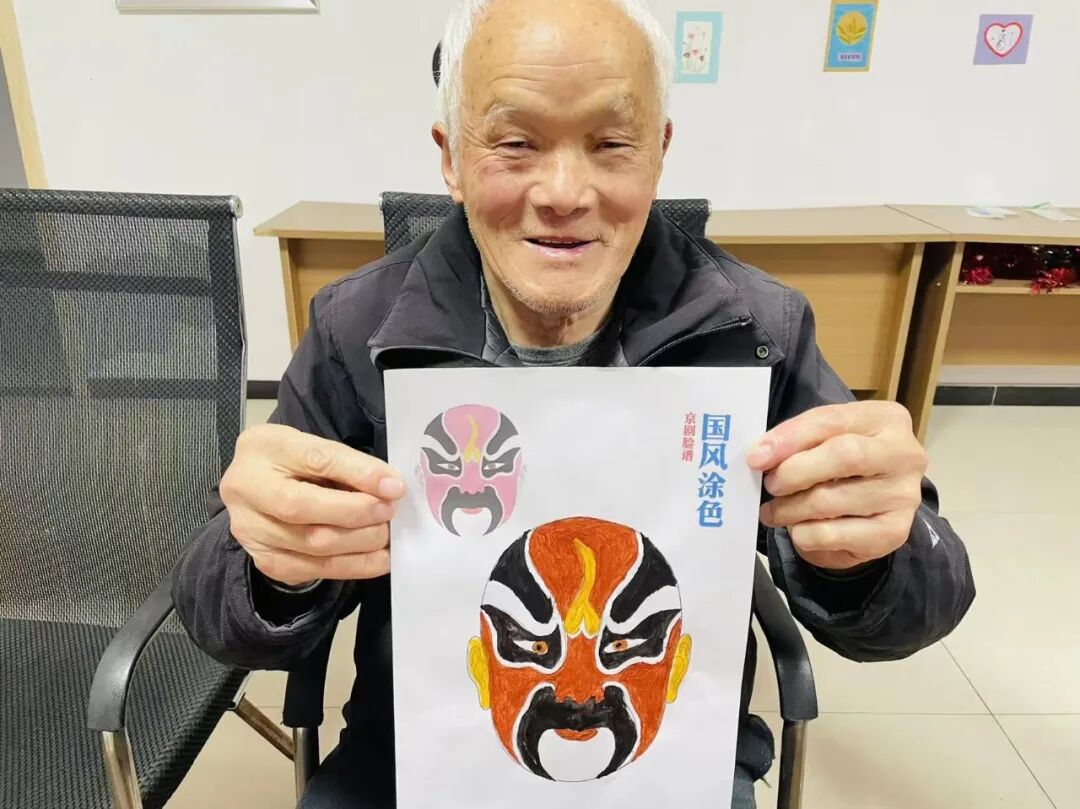 国风涂色
京剧脸谱